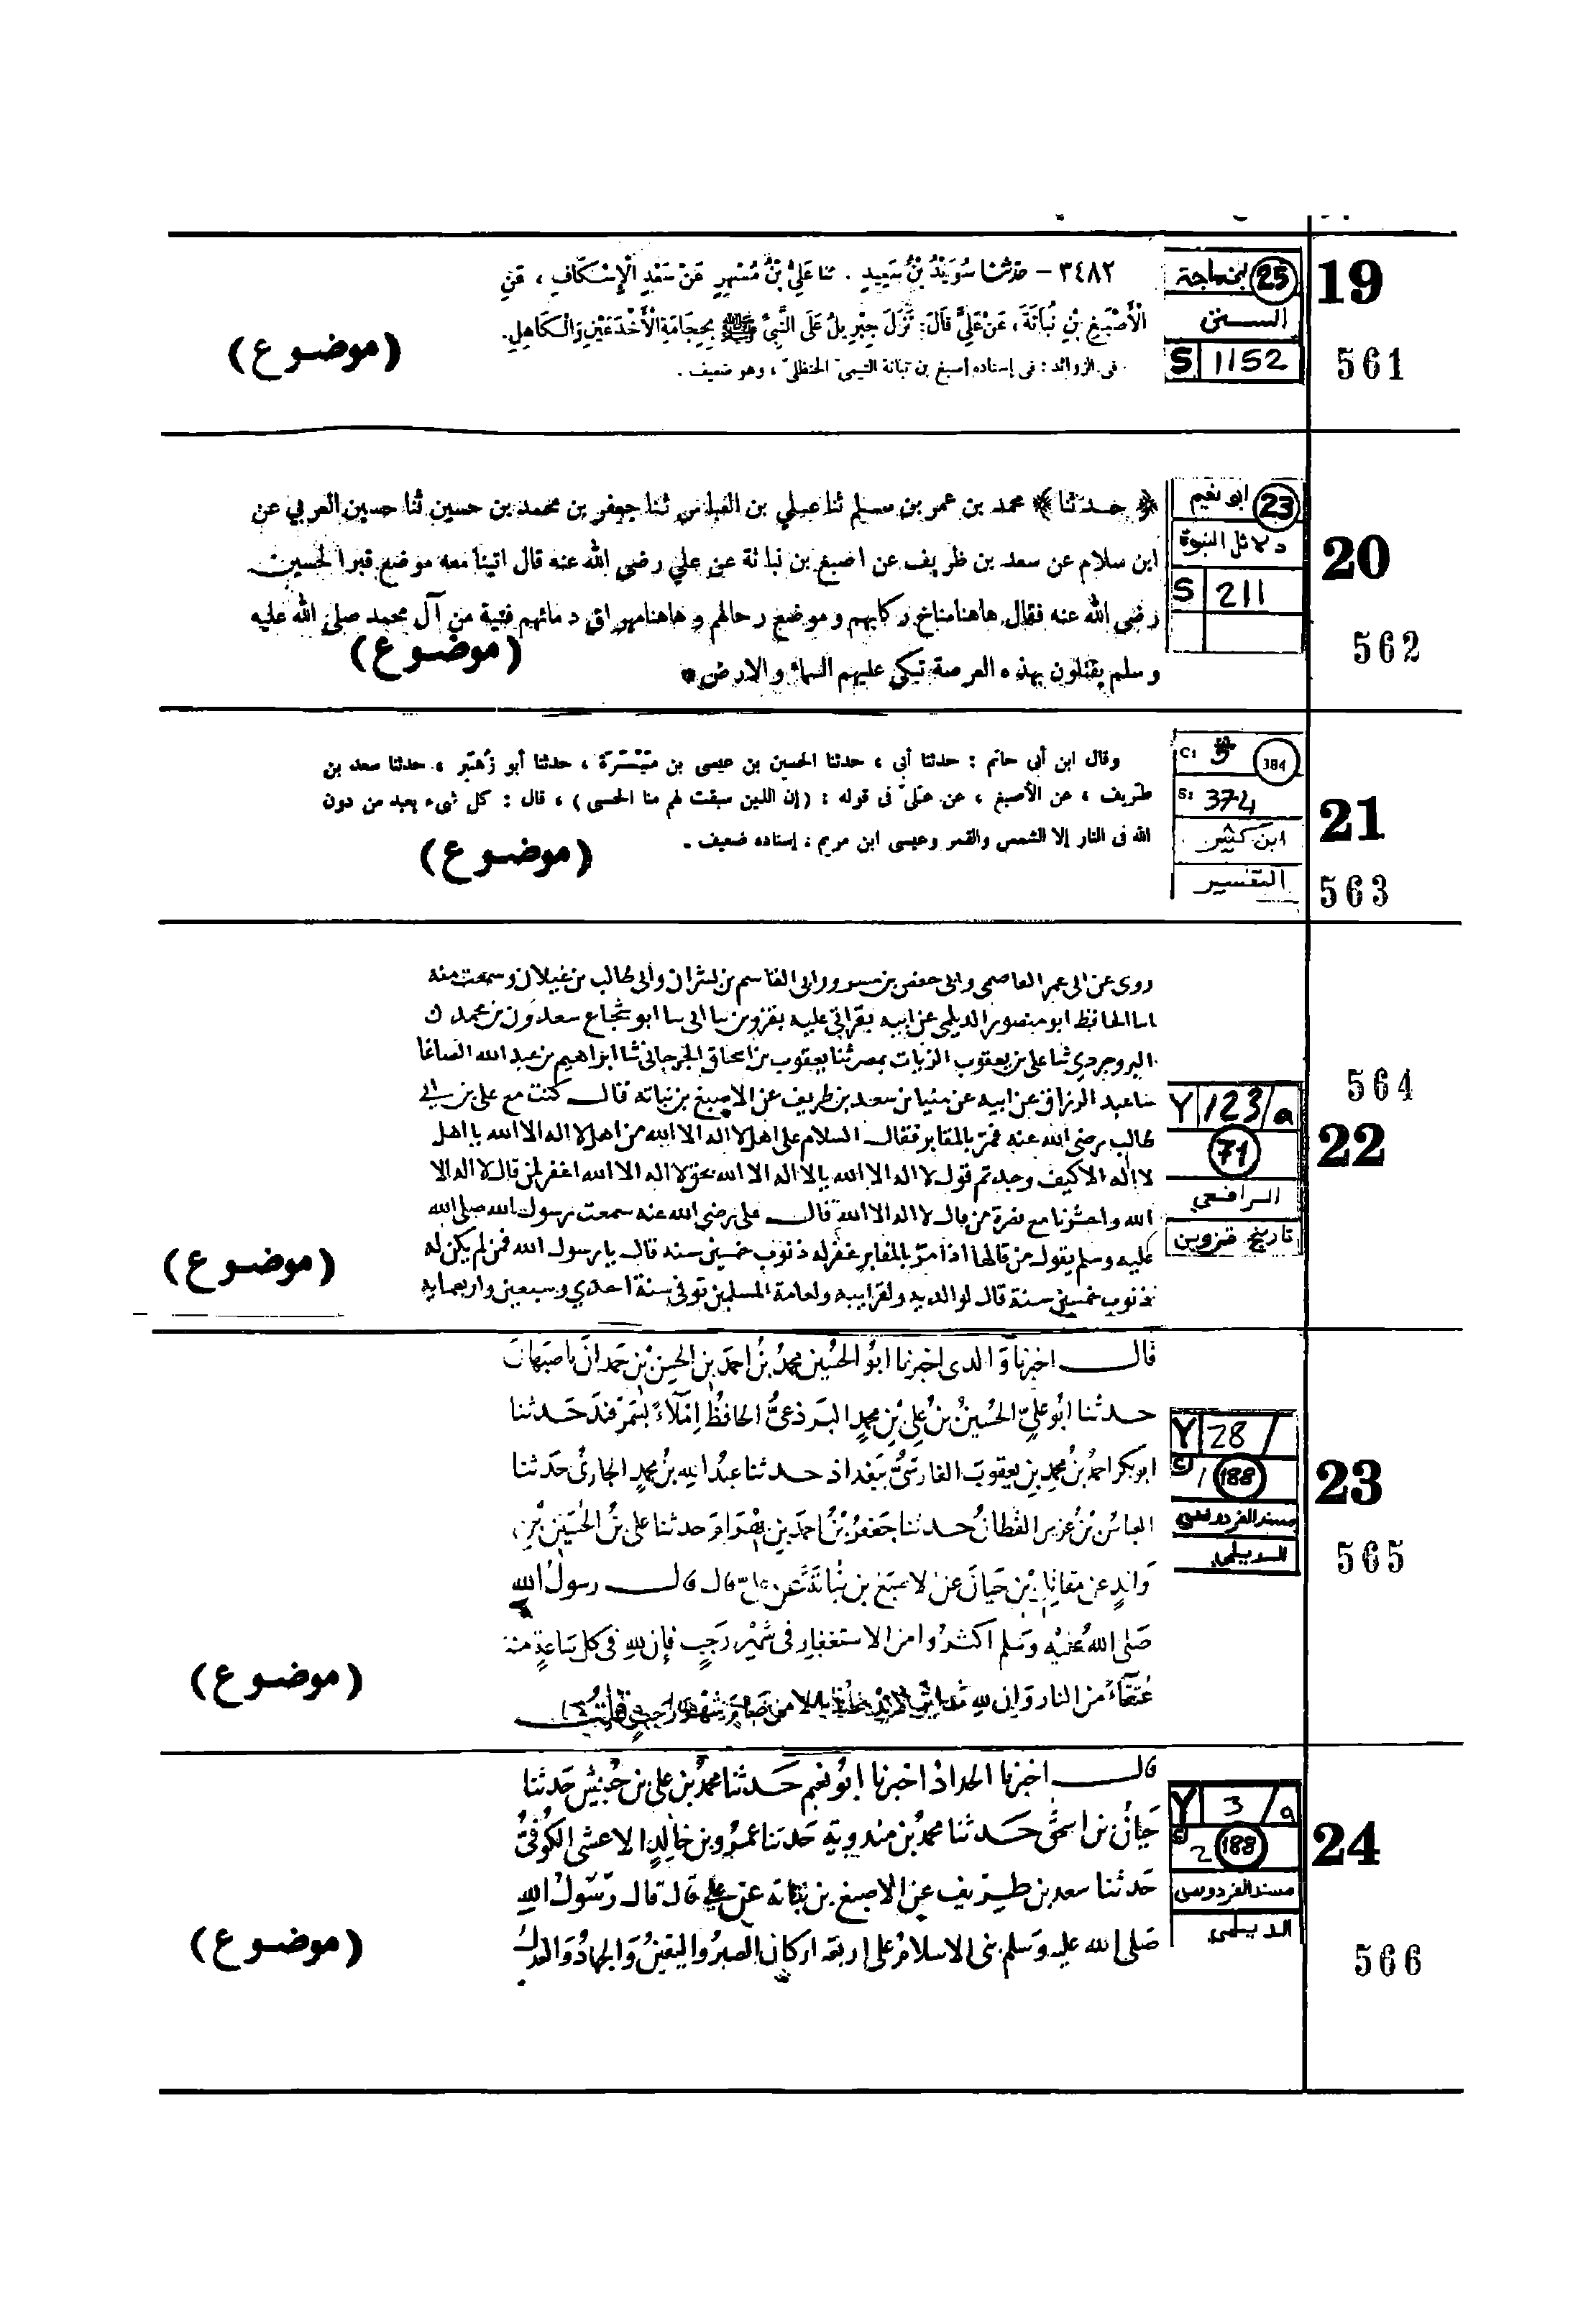 19
561
ابن ماجة 25
السنن
S 1152
٣٤٨٢ - حَدَّثَنَا سُوَيْدُ بْنُ سَعِيدٍ . ثنا عَلِيُّ بْنُ مُسْهِرٍ عَنْ سَعْدٍ الْإِسْكَافِ ، عَنِ
الْأَصْبَغِ بْنِ نُبَاتَةَ ، عَنْ عَلِيٍّ قَالَ : نَزَلَ جِبْرِيلُ عَلَى النَّبِيِّ ﷺ بِحِجَامَةِ الْأَخْدَعَيْنِ وَالْكَاهِلِ .
فى الزوائد : فى إسناده أصبغ بن نباتة التيمىّ الحنظلىّ ، وهو ضعيف .
(موضوع)
20
562
ابو نعيم 23
دلائل النبوة
S 211
﴿ حدثنا ﴾ محمد بن عمر بن مسلم ثنا علي بن العباس ثنا جعفر بن محمد بن حسين ثنا حسين العربي عن
ابن سلام عن سعد بن ظريف عن اصبغ بن نباتة عن علي رضى الله عنه قال اتينا معه موضع قبر الحسين
رضى الله عنه فقال هاهنا مناخ ركابهم و موضع رحالهم و هاهنا مهراق دمائهم فتية من آل محمد صلى الله عليه
و سلم يقتلون بهذه العرصة تبكى عليهم السماء و الارض *
(موضوع)
21
563
C: 5 384
S: 374
ابن كثير
التفسير
وقال ابن أبى حاتم : حدثنا أبى ، حدثنا الحسين بن عيسى بن مَيْسَرَة ، حدثنا أبو زُهَير ، حدثنا سعد بن
طريف ، عن الأصبغ ، عن علىّ فى قوله : (إن الذين سبقت لهم منا الحسنى) ، قال : كل شىء يعبد من دون
الله فى النار إلا الشمس والقمر وعيسى ابن مريم . إسناده ضعيف .
(موضوع)
564
22
Y 123/a
71
الرافعي
تاريخ قزوين
روى عن ابى عمر العاصمى وابى حفص بن مسرور وابى القاسم بن بشران وابى طالب بن غيلان وسمعت منه
الحافظ ابو منصور الديلمى عن ابيه بقراتى عليه بقزوين ابو شجاع سعدون بن محمد
البروجردي ثنا على بن يعقوب الزيات بمصر ثنا يعقوب بن اسحاق الجرجانى ثنا ابراهيم بن عبد الله الصاغا
عبد الرزاق عن ابيه عن مينا بن سعد بن طريف عن الاصبغ بن نباته قال كنت مع على بن ابي
طالب رضى الله عنه فمر بالمقابر فقال السلام على اهل لا اله الا الله من اهل لا اله الا الله يا اهل
لا اله الا كيف وجدتم قول لا اله الا الله يا لا اله الا الله بحق لا اله الا الله اغفر لمن قال لا اله الا
الله واحشرنا مع زمرة من قال لا اله الا الله قال على رضى الله عنه سمعت رسول الله صلى الله
عليه وسلم يقول من قالها اذا مر بالمقابر غفر له ذنوب خمسين سنة قال يا رسول الله فمن لم يكن له
ذنوب خمسين سنة قال لوالديه ولقرابيه ولعامة المسلمين توفى سنة احدي وسبعين واربعمايه
(موضوع)
23
565
Y 28 /
C 1 188
مسند الفردوس
الديلمي
قال اخبرنا والدى اخبرنا ابو الحسين محمد بن احمد بن الحسن بن حمدان باصبهان
حدثنا ابو علي الحسين بن علي بن محمد البرذعي الحافظ املاء بسمرقند حدثنا
ابو بكر احمد بن محمد بن يعقوب الفارسي ببغداذ حدثنا عبد الله بن محمد الحارثى حدثنا
العباس بن عزير القطان حدثنا جعفر بن احمد بن بهرام حدثنا علي بن الحسين بن
واقد عن مقاتل بن حيان عن الاصبغ بن نباتة عن علي قال قال رسول الله
صلى الله عليه وسلم اكثروا من الاستغفار فى شهر رجب فإن لله فى كل ساعة منه
عتقاء من النار وإن لله مدائن لا يدخلها الا من صام شهر رجب
(موضوع)
24
566
Y 3 /a
C 2 188
مسند الفردوس
الديلمي
قال اخبرنا الحداد اخبرنا ابو نعيم حدثنا محمد بن علي بن حبيش حدثنا
بن اسحق حدثنا محمد بن مندويه حدثنا عمرو بن خالد الاعشى الكوفى
حدثنا سعد بن طريف عن الاصبغ بن نباته عن علي قال قال رسول الله
صلى الله عليه وسلم بنى الاسلام على اربعة اركان الصبر واليقين والجهاد والعدل
(موضوع)